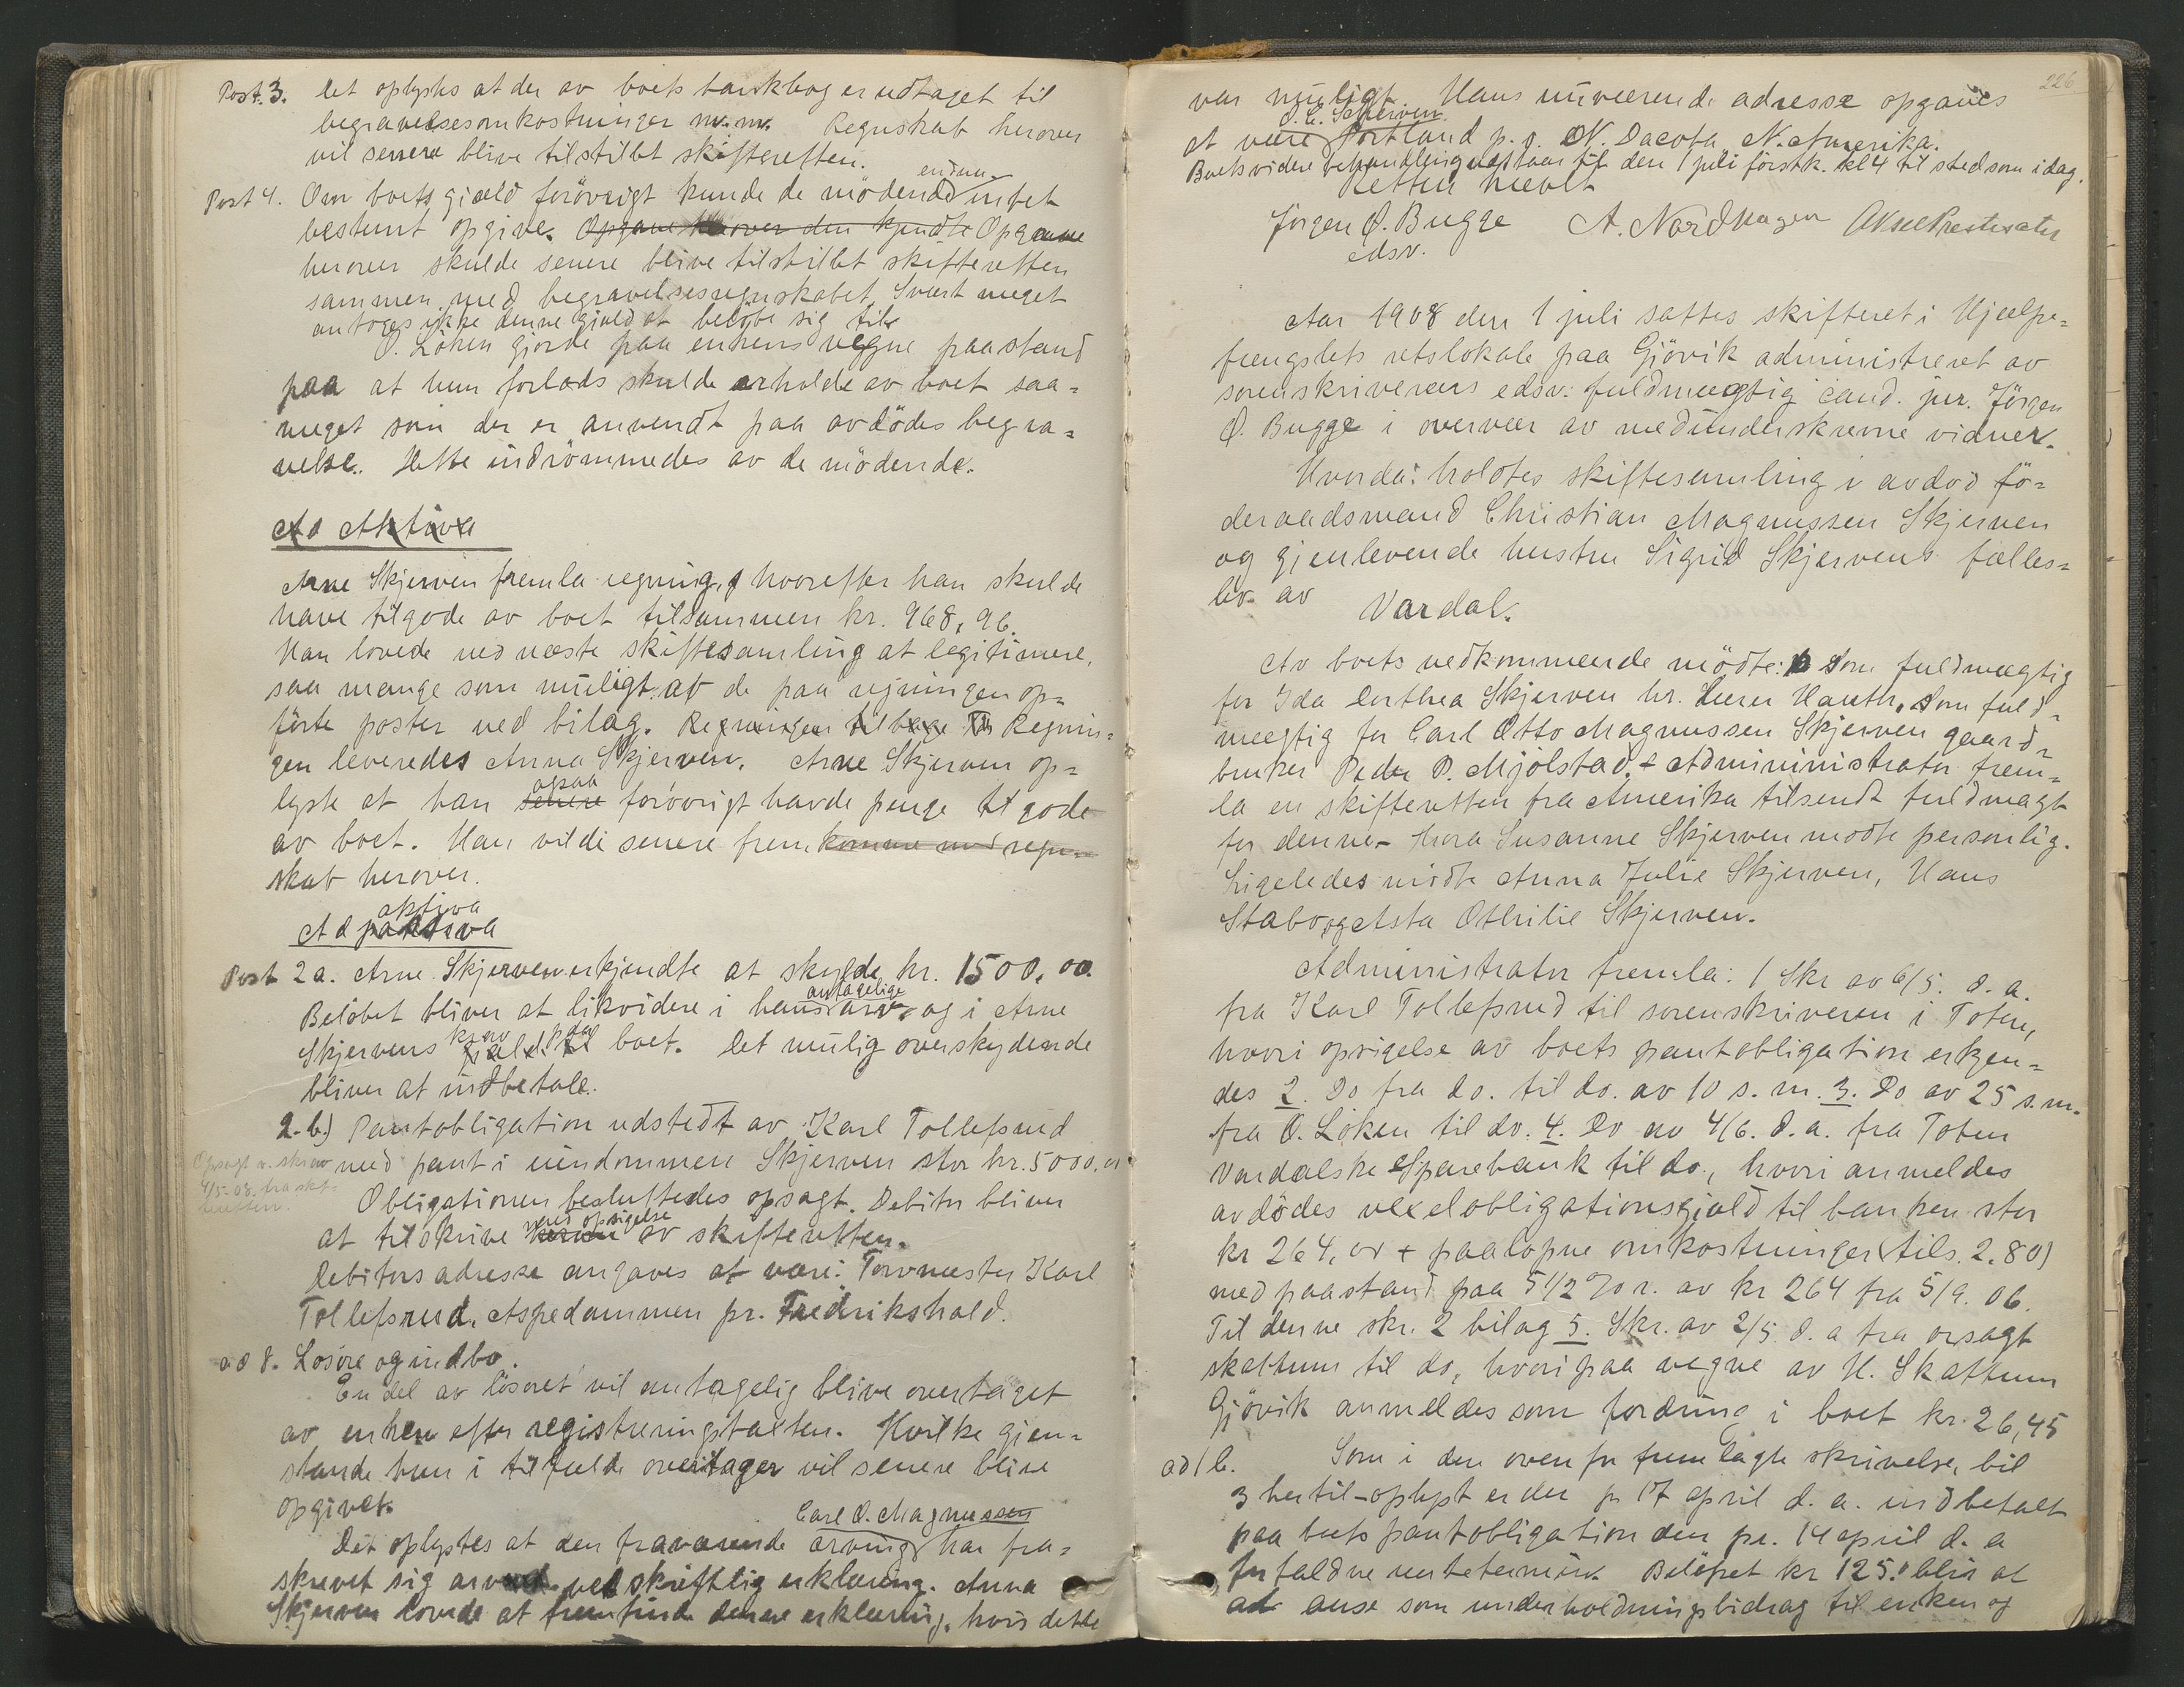 Post. 3. Det oplystes at der av boets bankbog er udtaget til
begravelsesomkostninger m.m. Regnskab herover
vil senere blive tilstillet skifteretten.
endnu
Post 4. Om boets gjæld forövrigt kunde de mödende intet
bestemt opgive. Opgave herover den kjendte Opgave
herover skulde senere blive tilstillet skifteretten
sammen med begravelsesregnskabet. Svært meget
antoges ikke denne gjæld at belöbe sig til.
O. Löken gjorde paa enkens vegne paastand
paa at hun forlods skulde erholde av boet saa=
meget som der er anvendt paa avdödes begra=
velse. Dette indrömmedes av de mödende.
Ad Aktiva
Arne Skjerven fremla regning, hvorefter han skulde
have tilgode av boet tilsammen kr. 968,96.
Han lovede ved næste skiftesamling at legitimere,
saa mange som muligt at de paa regningen op=
förte poster ved bilag. Regningen tilbage Regnin=
gen leveredes Anna Skjerven. Arne Skjerven op=
ogsaa
lyste at han senere forövrigt havde penge til gode
av boet. Han vilde senere fremkomme med regn=
skab herover.
aktiva
Ad passiva
Post 2a. Arne Skjerven erkjendte at skylde kr. 1500,00.
antagelige
Belöbet bliver at likvidere i hans arv og i Arne
krav paa
Skjervens gjæld til boet. Det mulig overskydende
bliver at indbetale.
2. b.) Pantobligation udstedt av Karl Tollefsrud
med pant i eiendommen Skjerven stor kr. 5000,00
Opsagt v. skriv
4/5-08. fra skf-
teretten.
Obligationen besluttedes opsagt. Debitor bliver
med opsigelse
at tilskrive herom av skifteretten.
Debitors adresse angaves at være: Torvmester Karl
Tollefsrud, Aspedammen pr. Fredrikshald.
ad 8. Lösöre og indbo.
En del av lösöret vil antagelig blive overtaget
av enken efter registreringstaksten. Hvilke gjen=
stande hun i tilfælde overtager vil senere blive
opgivet.
Carl O. Magnussen
Det oplystes at den fraværende arving har fra=
skrevet sig arv ved skriftlig erklæring. Anna
Skjerven lovede at fremfinde denne erklæring, hvis dette
226
var muligt. Hans nuværende adresse opgaves
O. C. Schjerven
at være Portland p.o. N. Dacota N. Amerika.
Boets videre behandling udstaar til den 1 juli förstk. kl 4 til sted som idag.
Retten hævet
Jörgen Ø. Bugge A. Nordhagen Aksel Prestesæter
edsv.
Aar 1908 den 1 juli sattes skifteret i Hjælpe=
fængslets retslokale paa Gjövik administreret av
sorenskriverens edsv. fuldmægtig cand. jur. Jörgen
Ø. Bugge i overvær av medunderskrevne vidner.
Hvorda: holdtes skiftesamling i avdöd fö=
deraadsmand Christian Magnussen Skjerven
og gjenlevende hustru Sigrid Skjervens fælles=
bo av Vardal.
Av boets vedkommende mödte: Som fuldmægtig
for Ida Dorthea Skjerven hr. Hauth, som fuld=
mægtig for Carl Otto Magnussen Skjerven gaard=
bruker Peder P. Mjölstad. + Administrator frem=
la en skifteretten fra Amerika tilsendt fuldmagt
for denne – Thora Susanne Skjerven mödte personlig.
Ligeledes mödte Anna Julie Skjerven, Hans
Stabo og Asta Othilie Skjerven.
Administrator fremla: 1 Skr av 6/5. d.a.
fra Karl Tollefsrud til sorenskriveren i Toten,
hvori opsigelse av boets pantobligation erkjen=
des 2. Do fra do. til do. av 10 s.m. 3. Do av 25 s.m.
fra O. Löken til do. 4. Do av 4/6. d.a. fra Toten
Vardalske Sparebank til do., hvori anmeldes
avdödes vexelobligationsgjæld til banken stor
kr 264,00 + paalöpne omkostninger (tils. 2.80)
med paastand paa 5 1/2 % r. av kr 264 fra 5/9. 06.
Til denne skr. 2 bilag 5. Skr. av 2/5. d.a. fra orsagf
Skattum til do, hvori paa vegne av H. Skattum
Gjövik anmeldes som fordring i boet kr. 26,45
ad 1 b. Som i den ovenfor fremlagte skrivelse, bil
3 hertil – oplyst er der pr 17 april d.a. indbetalt
paa boets pantobligation den pr. 14 april d.a
forfaldne rentetermin. Belöpet kr 125.00 blir at
at anse som underholdningsbidrag til enken og